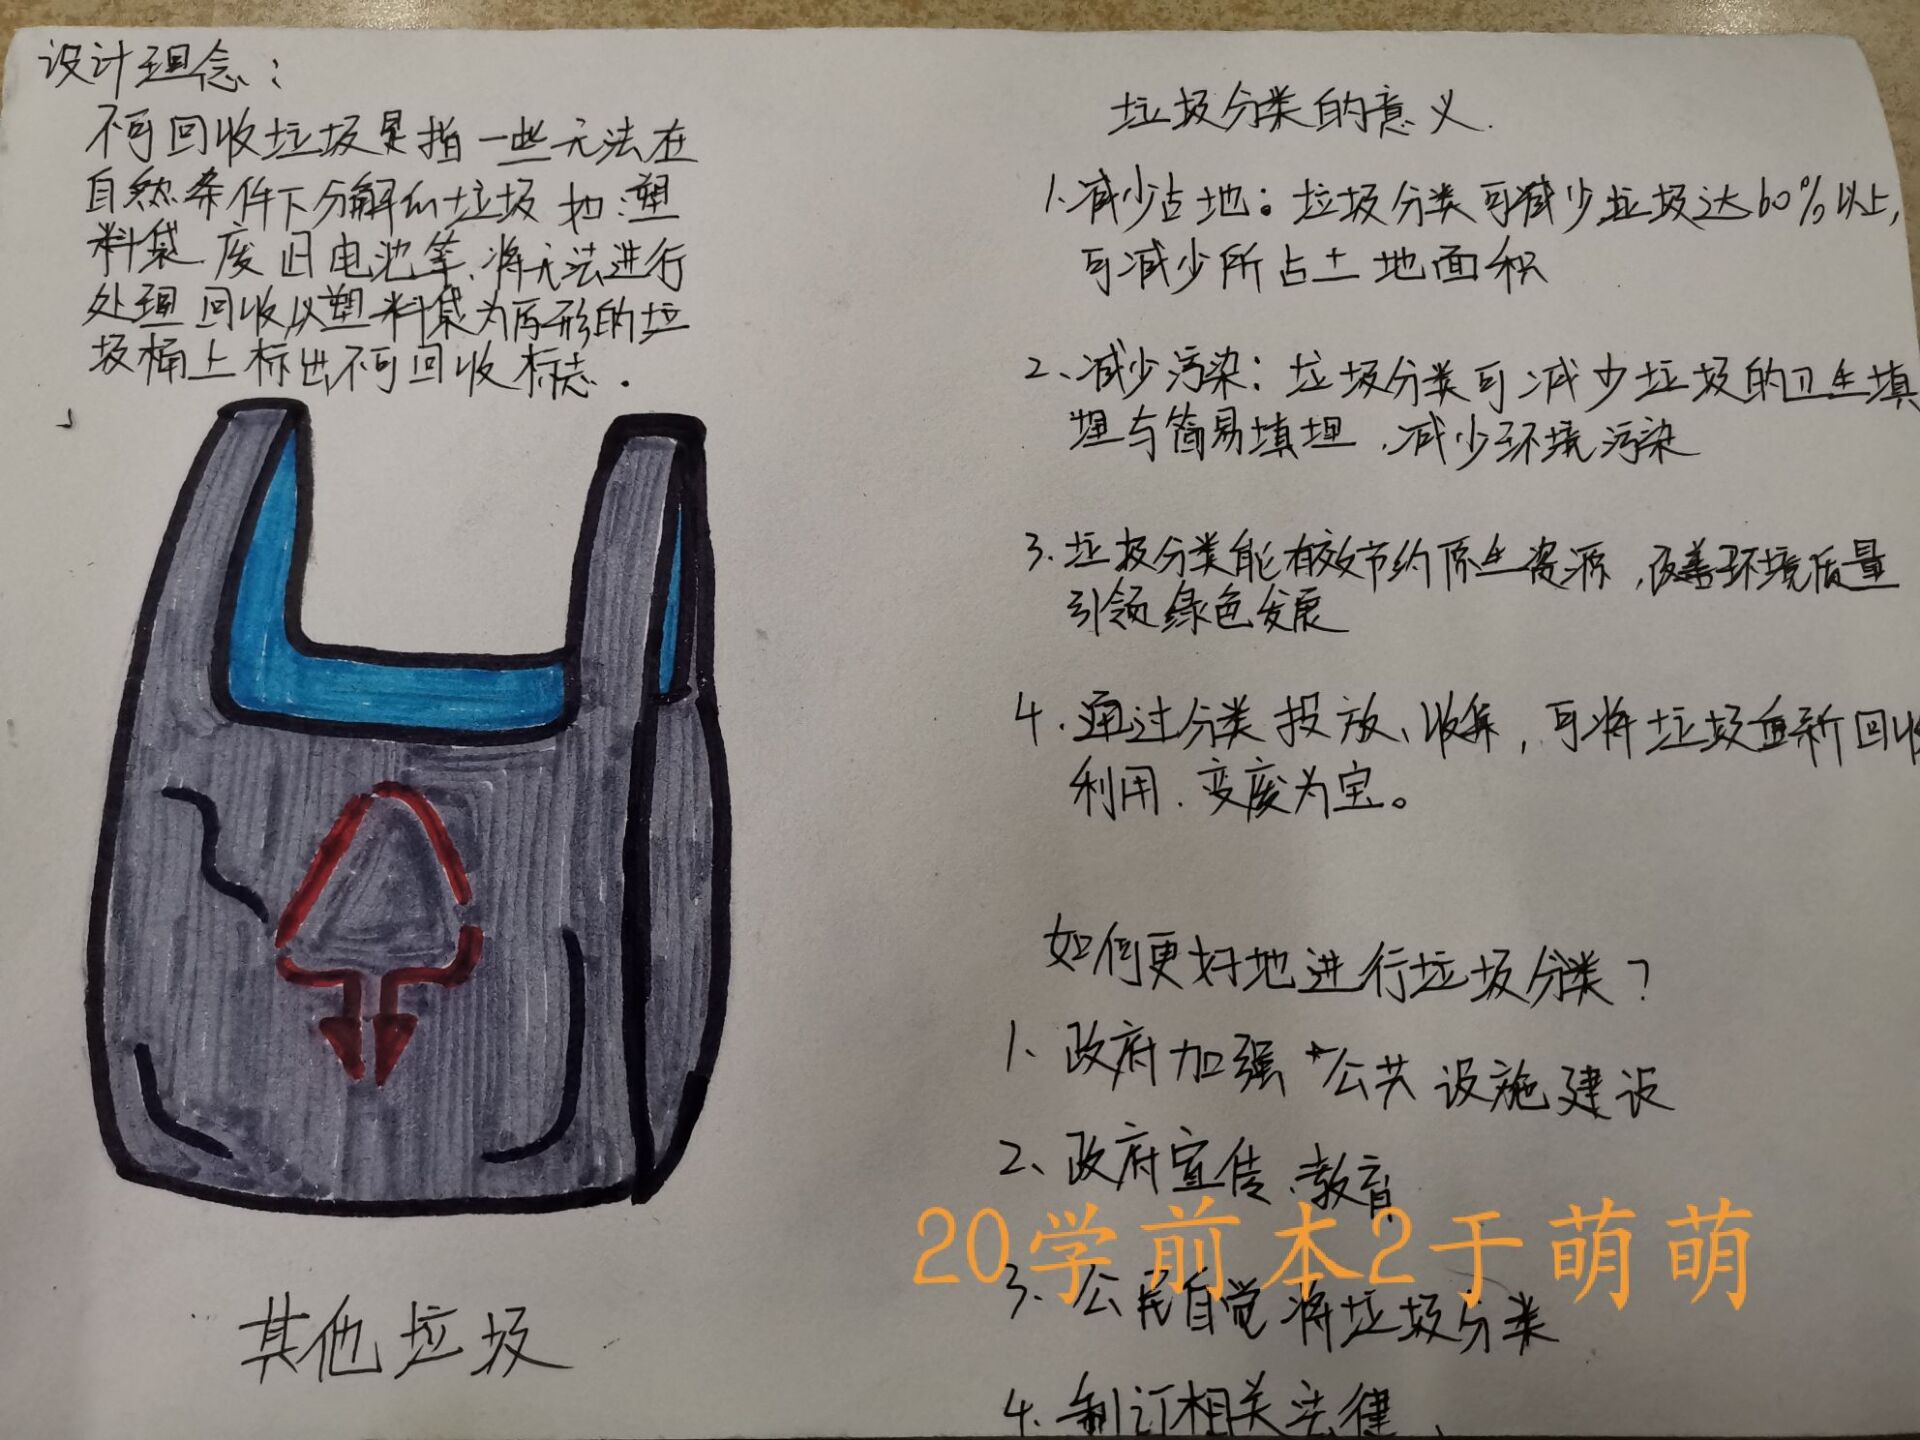 设计理念：
不可回收垃圾是指一些无法在
自然条件下分解的垃圾 如：塑
料袋、废旧电池等、将无法进行
处理 回收以塑料袋为原形的垃
圾桶上标出不可回收标志．
其他垃圾
垃圾分类的意义．
1.减少占地：垃圾分类可减少垃圾达60%以上，
可减少所占土地面积
2、减少污染：垃圾分类可减少垃圾的卫生填
埋与简易填埋、减少环境污染
3．垃圾分类能有效节约原生资源，改善环境质量
引领绿色发展
4．通过分类投放、收集，可将垃圾重新回收
利用．变废为宝。
如何更好地进行垃圾分类？
1、政府加强公共设施建设
2、政府宣传、教育
20学前本2于萌萌
3．公民自觉将垃圾分类
4．制订相关法律、